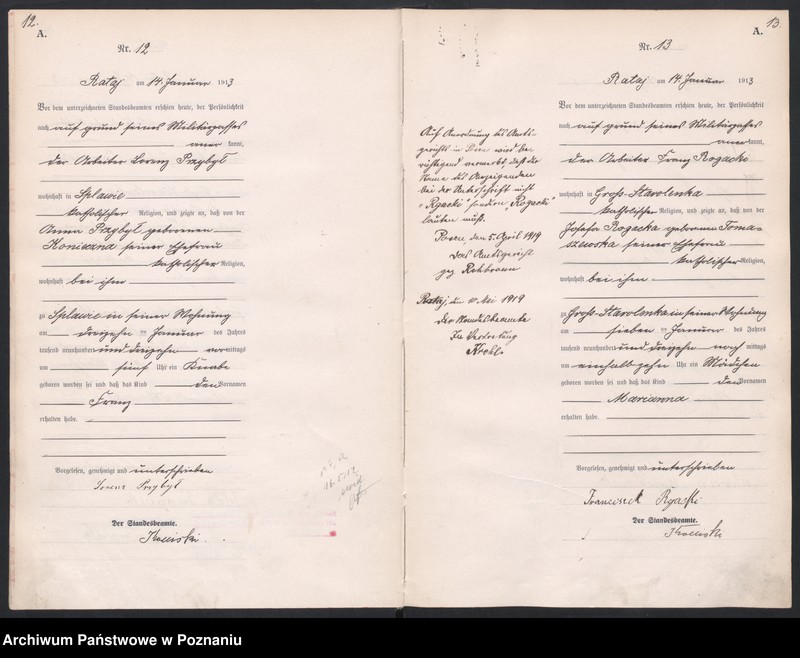 12.
A.
Nr. 12
Rataj am 14. Januar 1913
Vor dem unterzeichneten Standesbeamten erschien heute, der Persönlichkeit
nach auf grund seines Militärpasses
aner kannt,
der Arbeiter Lorenz Przybyl
wohnhaft in Splawie
katholischer Religion, und zeigte an, daß von der
Anna Przybyl geborenen
Konieczna seiner Ehefrau
katholischer Religion,
wohnhaft bei ihm
zu Splawie in seiner Wohnung
am dreizehnten Januar des Jahres
tausend neunhundert und dreizehn vormittags
um fünf Uhr ein Knabe
geboren worden sei und daß das Kind den Vornamen
Franz
erhalten habe.
Vorgelesen, genehmigt und unterschrieben
Lorenz Przybyl
Der Standesbeamte.
13.
A.
Nr. 13
Rataj am 14. Januar 1913
Vor dem unterzeichneten Standesbeamten erschien heute, der Persönlichkeit
nach auf grund seines Militärpasses
aner kannt,
der Arbeiter Franz Rogacki
wohnhaft in Groß-Starolenka
katholischer Religion, und zeigte an, daß von der
Josefa Rogacka geborenen Toma-
szewska seiner Ehefrau
katholischer Religion,
wohnhaft bei ihm
zu Groß-Starolenka in seiner Wohnung
am sieben ten Januar des Jahres
tausend neunhundert und dreizehn nach mittags
um einhalb zehn Uhr ein Mädchen
geboren worden sei und daß das Kind den Vornamen
Marianna
erhalten habe.
Vorgelesen, genehmigt und unterschrieben
Franciszek
Der Standesbeamte.
Auf Anordnung des Amts-
gerichts in Posen wird be-
richtigend vermerkt, daß der
Name des Anzeigenden
bei der Unterschrift nicht
"Rgacki" sondern "Rogacki"
lauten muß.
Posen, den 5. April 1919
Das Amtsgericht
gez.
Rataj, den 10. Mai 1919
Der Standesbeamte
In Vertretung
Archiwum Państwowe w Poznaniu